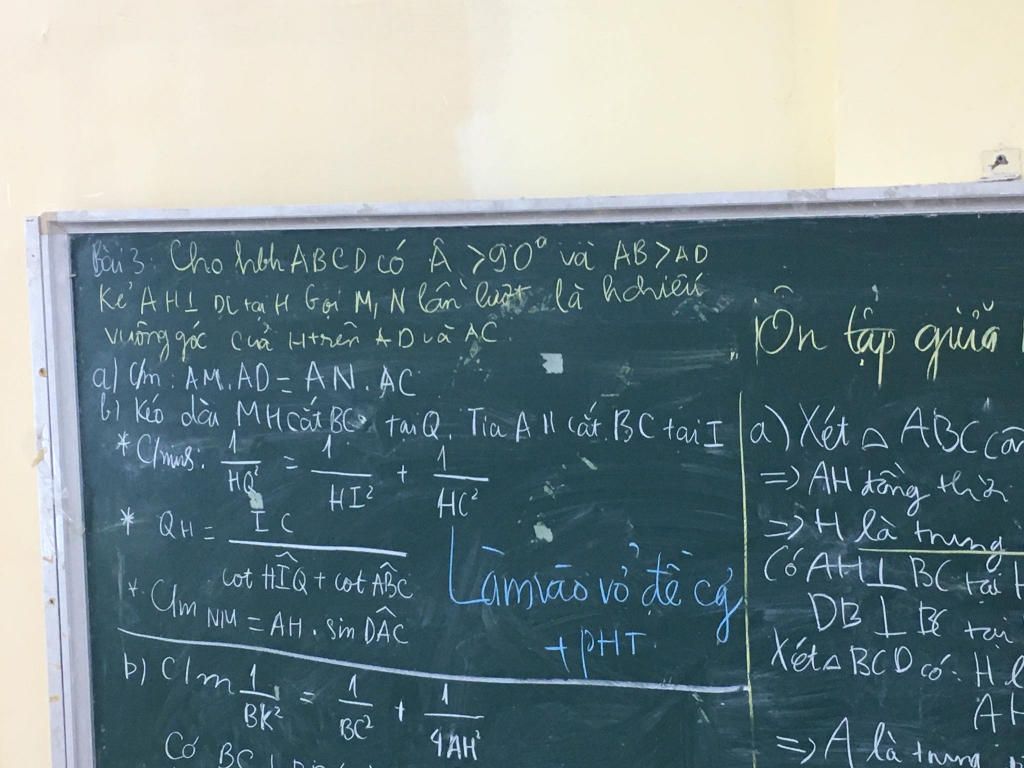 Bài 3: Cho hbh ABCD có Â >90° và AB>AD
Kẻ AH⊥ DC tại H Gọi M, N lần lượt là h chiếu
vuông góc của H trên AD và AC.
a) C/m: AM.AD = AN.AC
b) Kéo dài MH cắt BC tại Q. Tia AH cắt BC tại I
* C/m: 1/HQ² = 1/HI² + 1/HC²
* QH = IC / (cot HÎQ + cot AB̂C)
* C/m NM = AH. sin DÂC
Làm vào vở đề cg
+ PHT.
b) C/m 1/BK² = 1/BC² + 1/4AH²
Có BC ⊥
Ôn tập giữa
a) Xét △ ABC cân
=> AH đồng thời
=> H là trung
Có AH⊥ BC tại H
DB ⊥ BC tại
Xét △ BCD có: H l
AH
=> A là trung